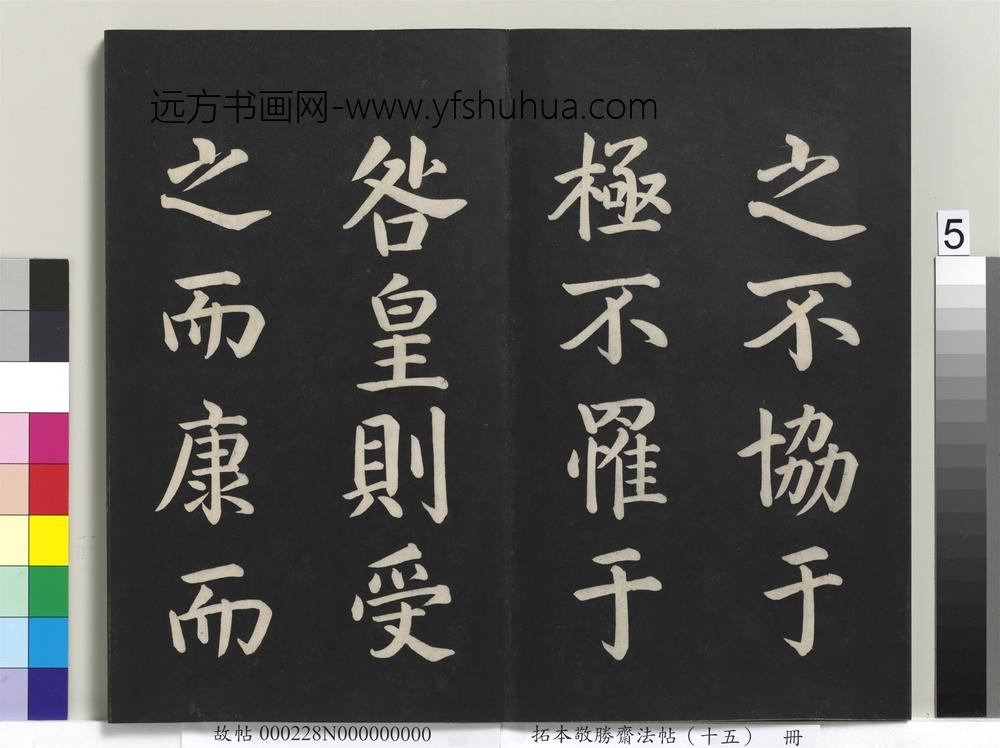 远方书画网-www.yfshuhua.com
之不協于
極不罹于
咎皇則受
之而康而
5
故帖 000228N000000000
拓本敬勝齋法帖（十五） 冊